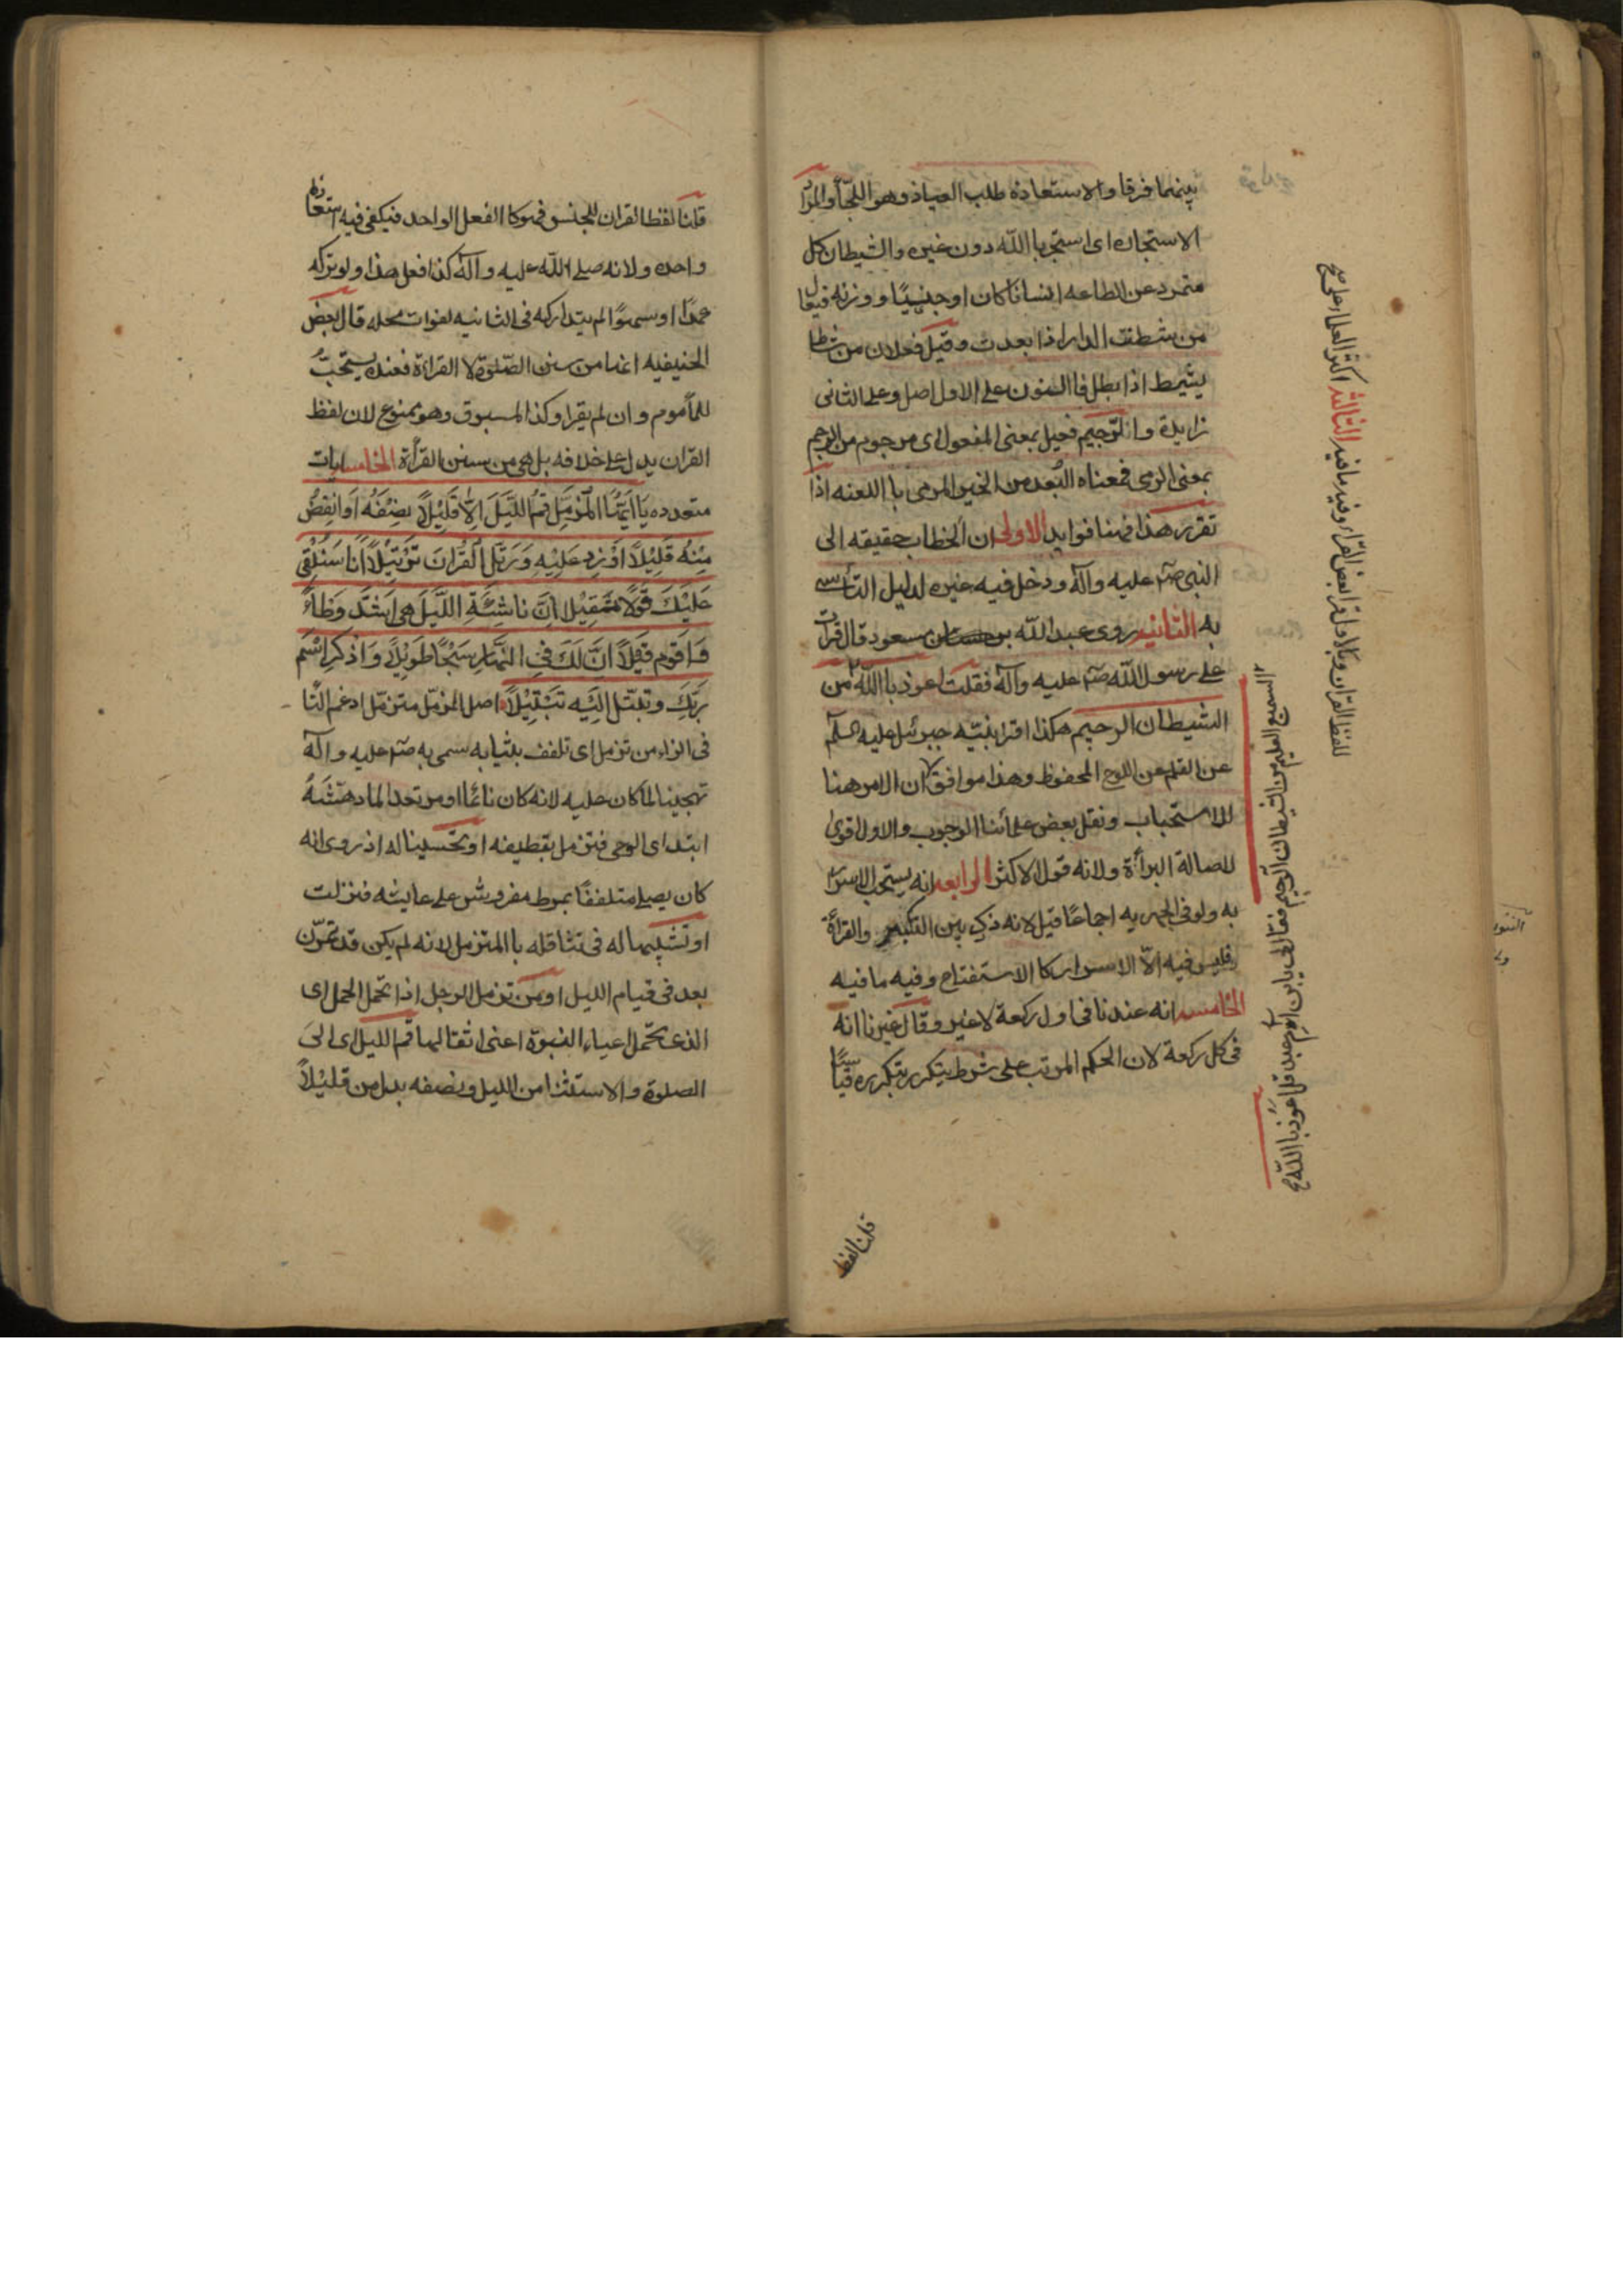 بينهما فرقا والاستعاذه طلب العياذ وهو اللجأ والمراد
الاستجاره اى استجر باالله دون غيره والشيطان كل
متمرد عن الطاعه انسانا كان او جنيا ووزنه فيعال
من شطنت الدار اذا بعدت وقيل فعلان من شاط
يشيط اذا بطل فاالنون على الاول اصل وعلى الثانى
زايدة والرجيم فعيل بمعنى المفعول اى مرجوم من الرجم
بمعنى الرمى فمعناه البُعد من الخير المرمى باا اللعنه اذا
تقرر هذا فهنا فوايد الاولى ان الخطاب حقيقه الى
النبى صم عليه وآله ودخل فيه غيره لدليل التأسى
به الثانيه روى عبد الله بن مسعود قال قرأت
على رسول الله صم عليه وآله فقلت اعوذ باالله من
الشيطان الرجيم هكذا اقرانيه جبرئيل عليه السلم
عن القلم عن اللوح المحفوظ وهذا موافق ان الامر هنا
للاستحباب ونقل بعض علمائنا الوجوب والاول اقوى
لاصالة البرأة ولانه قول الاكثر الرابعه انه يستحب الاسرار
به ولو فى الجهريه اجماعًا قيل لانه ذكر بين التكبير والقرأة
فليس فيه الاّ الاسرار كا الاستفتاح وفيه ما فيه
الخامسه انه عندنا فى اول ركعة لا غير وقال غيرنا انه
فى كل ركعة لان الحكم المرتب على شرط يتكرر بتكرره قياسًا
السميع العليم من الشيطان الرجيم فقال لى يا ابن ام عبد قل اعوذ باالله
للفظ القران وبه قرا بعض القراء وفيه ما فيه الثالثه اكثر العلماء على
قلنا لفظ
قلنا لفظ القران للجنس فهو كا الفعل الواحد فيكفى فيه استعاذه
واحده ولانه صلى الله عليه وآله كذا فعل هذا ولو تركه
عمدًا او سهوًا لم يتداركه فى الثانيه لفوات محله قال بعض
الحنيفيه انها من سنن الصّلوة لا القراءة فعنده يستحبّ
للمأموم وان لم يقرا وكذا المسبوق وهو ممنوع لان لفظ
القران يدل على خلافه بل هى من سنن القرأة الخامسه ايات
متعدده يَا اَيُّهَا المُزَّمِّل قُمْ اللَّيْلَ اِلاَّ قَلِيْلاً نِصْفَهُ اَوانقِصُ
مِنْهُ قَلِيْلاً اَوْ زِد عَلَيْهِ وَرَتِّل الْقُرْانَ تَرْتِيْلاً اَنا سَنُلْقِى
عَلَيْكَ قَوْلاً ثَقِيْل اِنَّ نَاشِئَةَ اللَّيْلَ هِىَ اَشَدّ وَطْأً
وَاَقوم قِيْلاً انَّ لَكَ فِى النَّهَارِ سَبْحًا طَويْلاً وَاذْكُر اسْمَ
رَبّك وتبتّل اِلَيْهِ تَبْتِيْلاً اصل المزمّل متزمّل ادغم التا
فى الزاء من تزمل اى تلفف بثيابه سمى به صم عليه وآله
تهجينا لما كان عليه لانه كان نائمًا او مرتعدا لما دهشهُ
ابتداى الوحى فتزمل بقطيفه او تحسينا له اذ روى انه
كان يصلى متلففًا بمرط مفروش على عايشه فنزلت
او تشبيها له فى تثاقله باالمتزمل لانه لم يكن قد تمرّن
بعد فى قيام الليل او من تزمل الرجل اذا تحمل الحمل اى
الذى تحمل اعباء النبوة اعنى اثقالها قم الليل اى الىَ
الصلوة والاستثنا من الليل ونصفه بدل من قليلاً